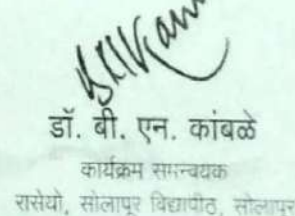 डॉ. बी. एन. कांबळे
कार्यक्रम समन्वयक
रासेयो, सोलापूर विद्यापीठ, सोलापूर